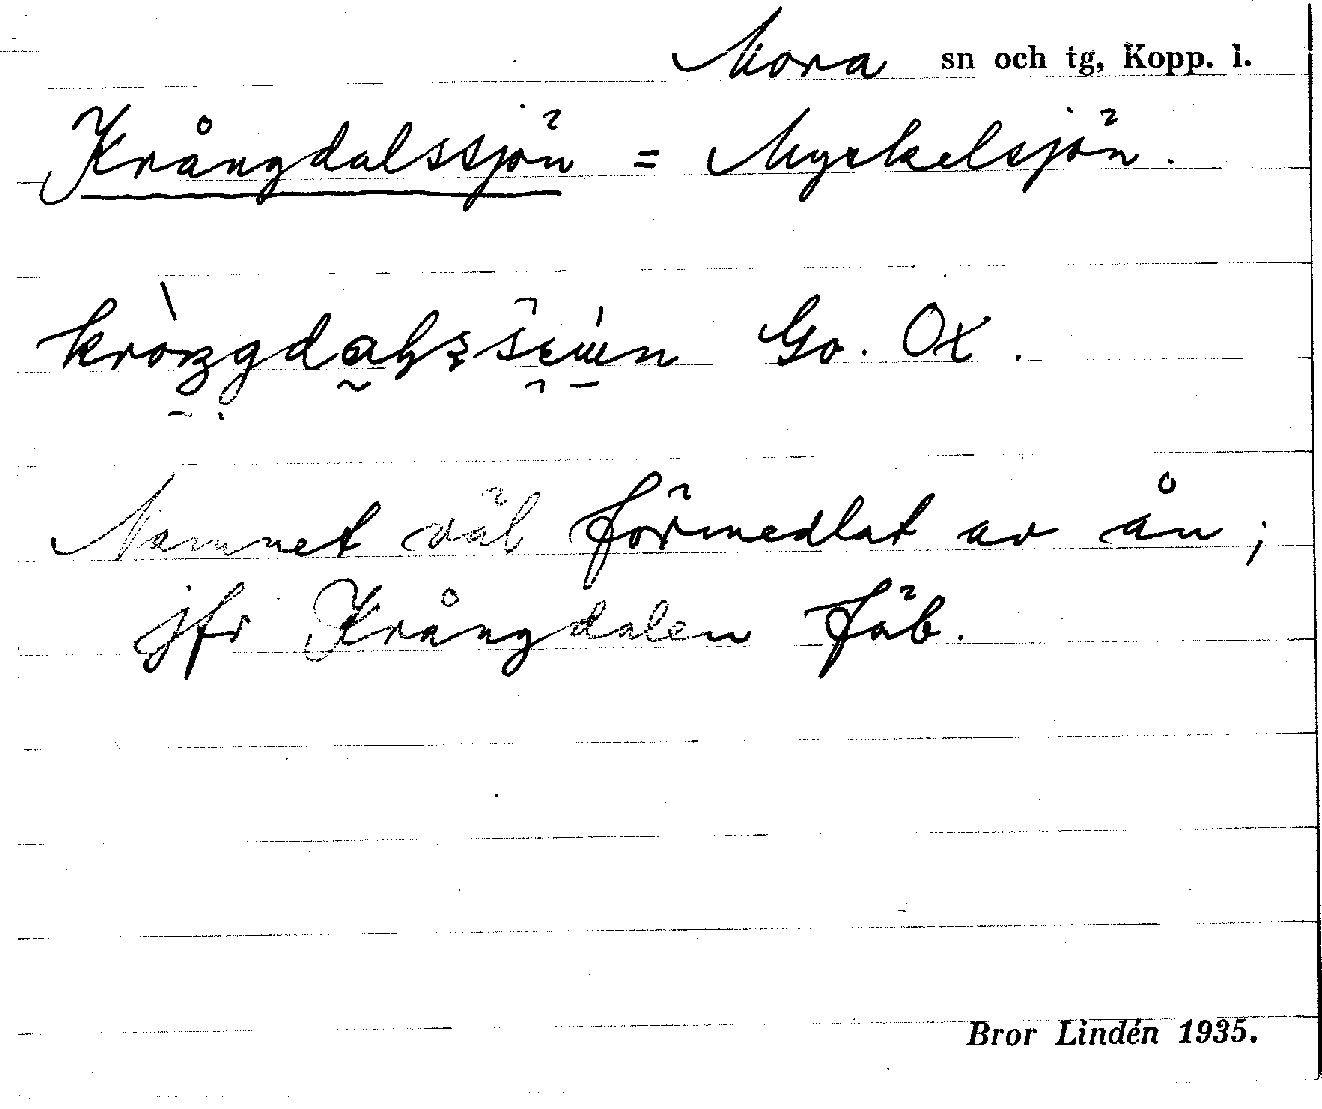 Mora sn och tg, Kopp. l.
Krångdalssjön = Myckelsjön.
Go. Ox.
Namnet väl förmedlat av ån;
jfr Krångdalen fäb.
Bror Lindén 1935.